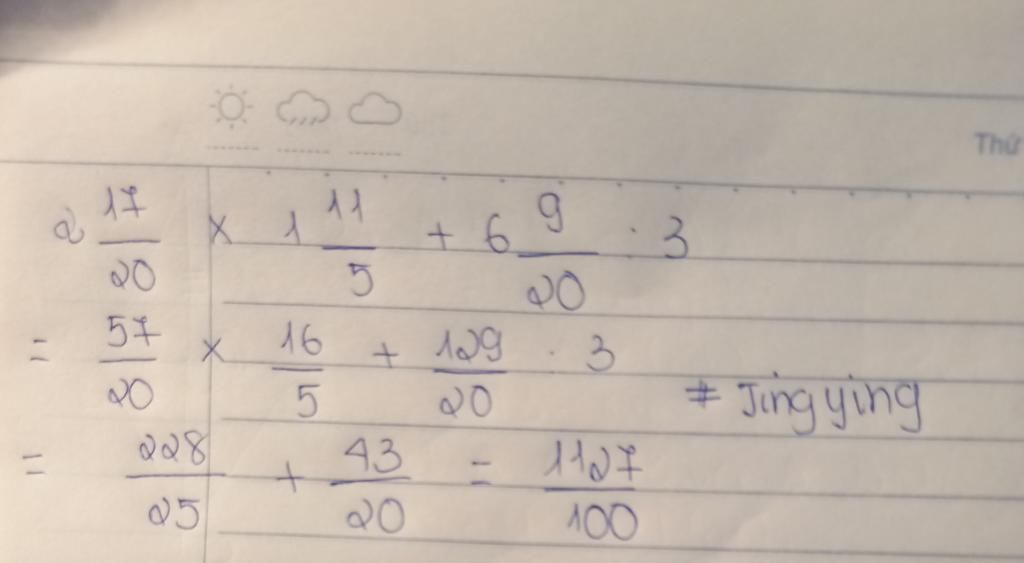 Thứ
2 17/20 × 1 11/5 + 6 9/20 : 3
= 57/20 × 16/5 + 129/20 : 3
# Jingying
= 228/25 + 43/20 = 1127/100